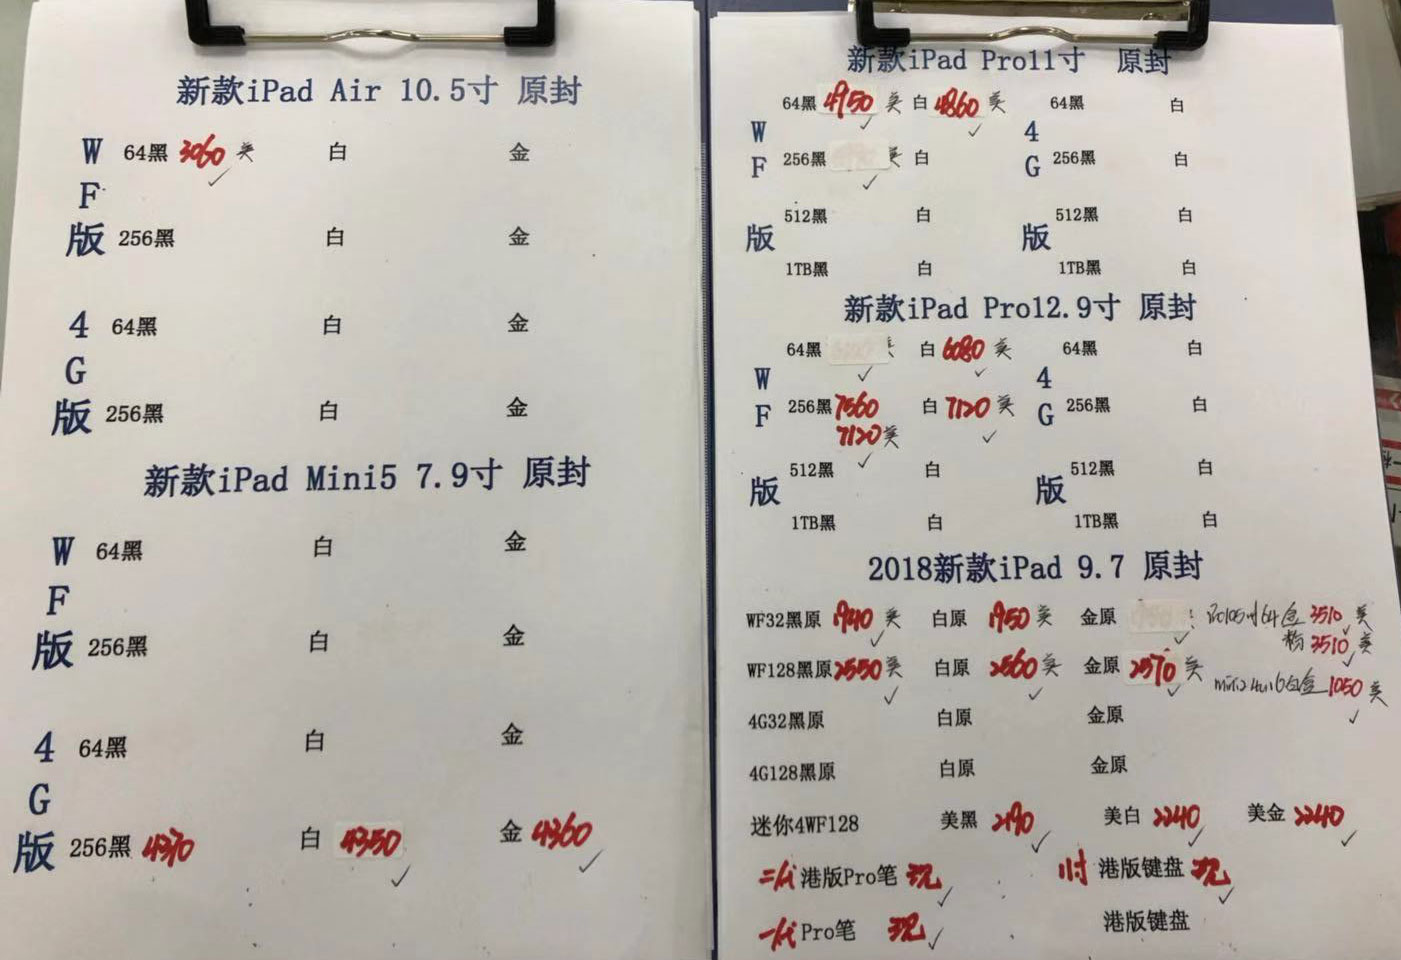 新款iPad Air 10.5寸 原封
WF版
64黑 3060 美 白 金
256黑 白 金
4G版
64黑 白 金
256黑 白 金
新款iPad Mini5 7.9寸 原封
WF版
64黑 白 金
256黑 白 金
4G版
64黑 白 金
256黑 4370 白 4350 金 4360
新款iPad Pro11寸 原封
WF版 4G版
64黑 4950 美 白 4860 美 64黑 白
256黑 美 白 256黑 白
512黑 白 512黑 白
1TB黑 白 1TB黑 白
新款iPad Pro12.9寸 原封
WF版 4G版
64黑 白 6080 美 64黑 白
256黑 7560 白 7120 美 256黑 白
7120 美
512黑 白 512黑 白
1TB黑 白 1TB黑 白
2018新款iPad 9.7 原封
WF32黑原 1940 美 白原 1950 美 金原 3510 美
粉 3510 美
WF128黑原 2550 美 白原 2560 美 金原 2570 美 1050 美
4G32黑原 白原 金原
4G128黑原 白原 金原
迷你4WF128 美黑 2190 美白 2240 美金 2240
二代 港版Pro笔 现 11寸 港版键盘 现
一代 Pro笔 现 港版键盘